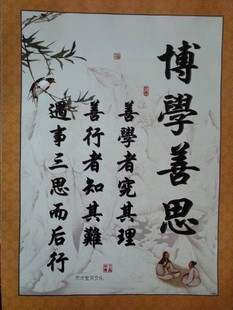 博學善思
善學者究其理
善行者知其難
遇事三思而后行